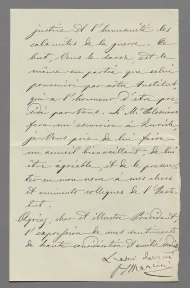 justice et l'humanité les
calamités de la guerre. Ce
but, Vous le savez, est le
même en partie que celui
poursuivi par notre Institut,
qui a l'honneur d'être pré-
sidé par Vous. Si M.
fera un séjour à
je Vous prie de lui faire
un accueil bienveillant, de lui
être agréable, et de le présen-
ter en mon nom à mes chers
et éminents collègues de l'Insti-
tut.
Agréez, cher et illustre Président,
l'expression de mes sentiments
de haute considération et amitié